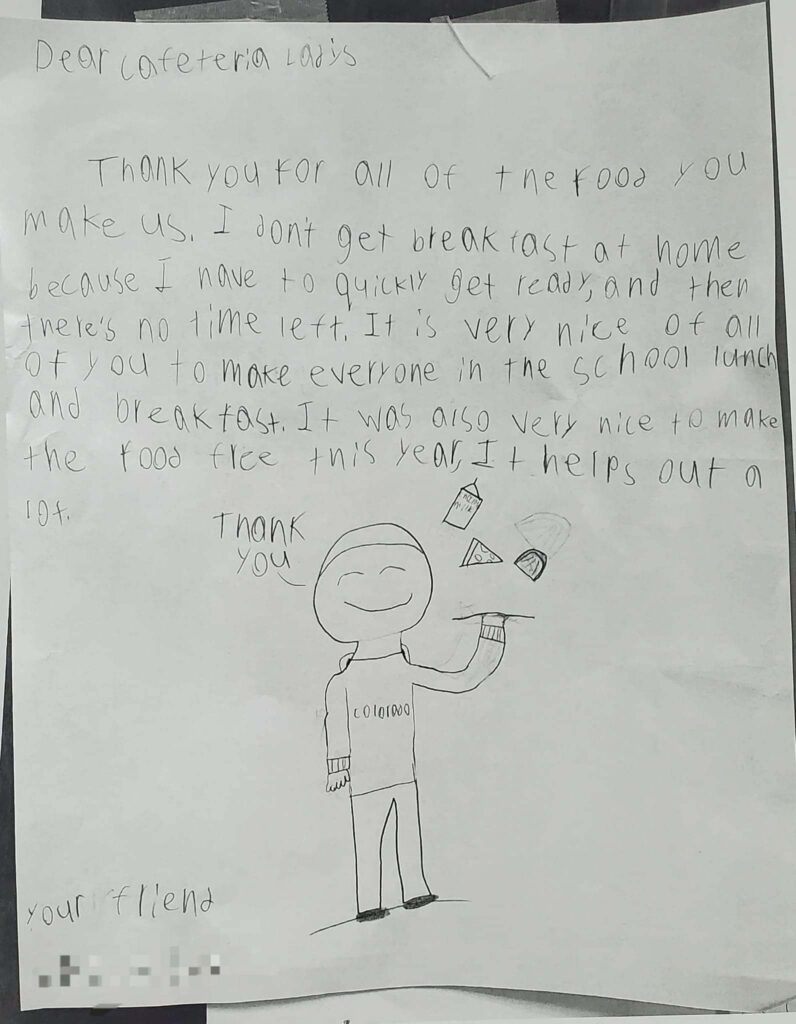 Dear cafeteria ladis
Thank you for all of the food you
make us. I don't get breakfast at home
because I have to quickly get ready, and then
there's no time left. It is very nice of all
of you to make everyone in the school lunch
and breakfast. It was also very nice to make
the food free this year, It helps out a
lot.
Thank
you
milk
COlORADO
your friend